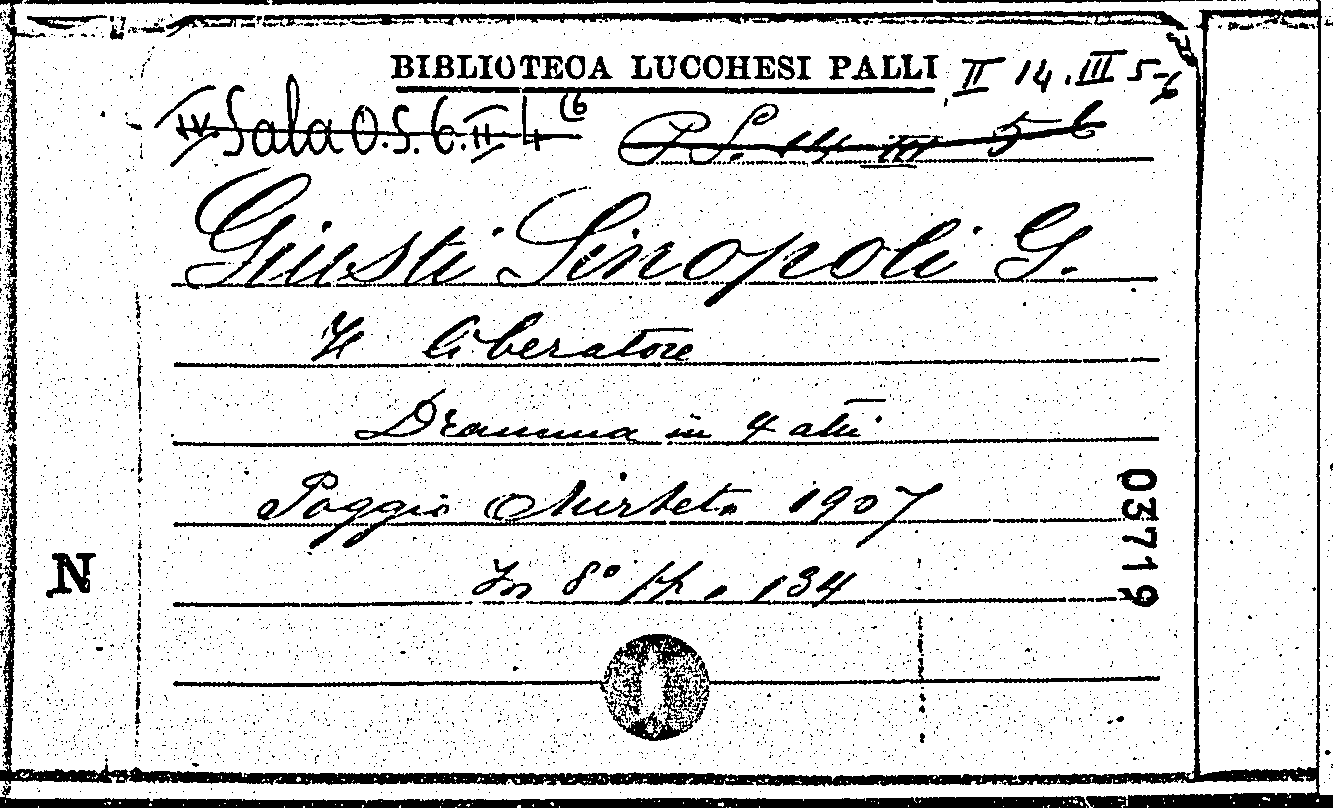 BIBLIOTECA LUCCHESI PALLI II 14. III 5-6
IV. Sala O.S. 6. II 4 (6
P.S. 14 III 5 6
Giusti Sinopoli G.
Il liberatore
Dramma in 4 atti
Poggio Mirteto 1907
In 8° pp. 134
03719
N